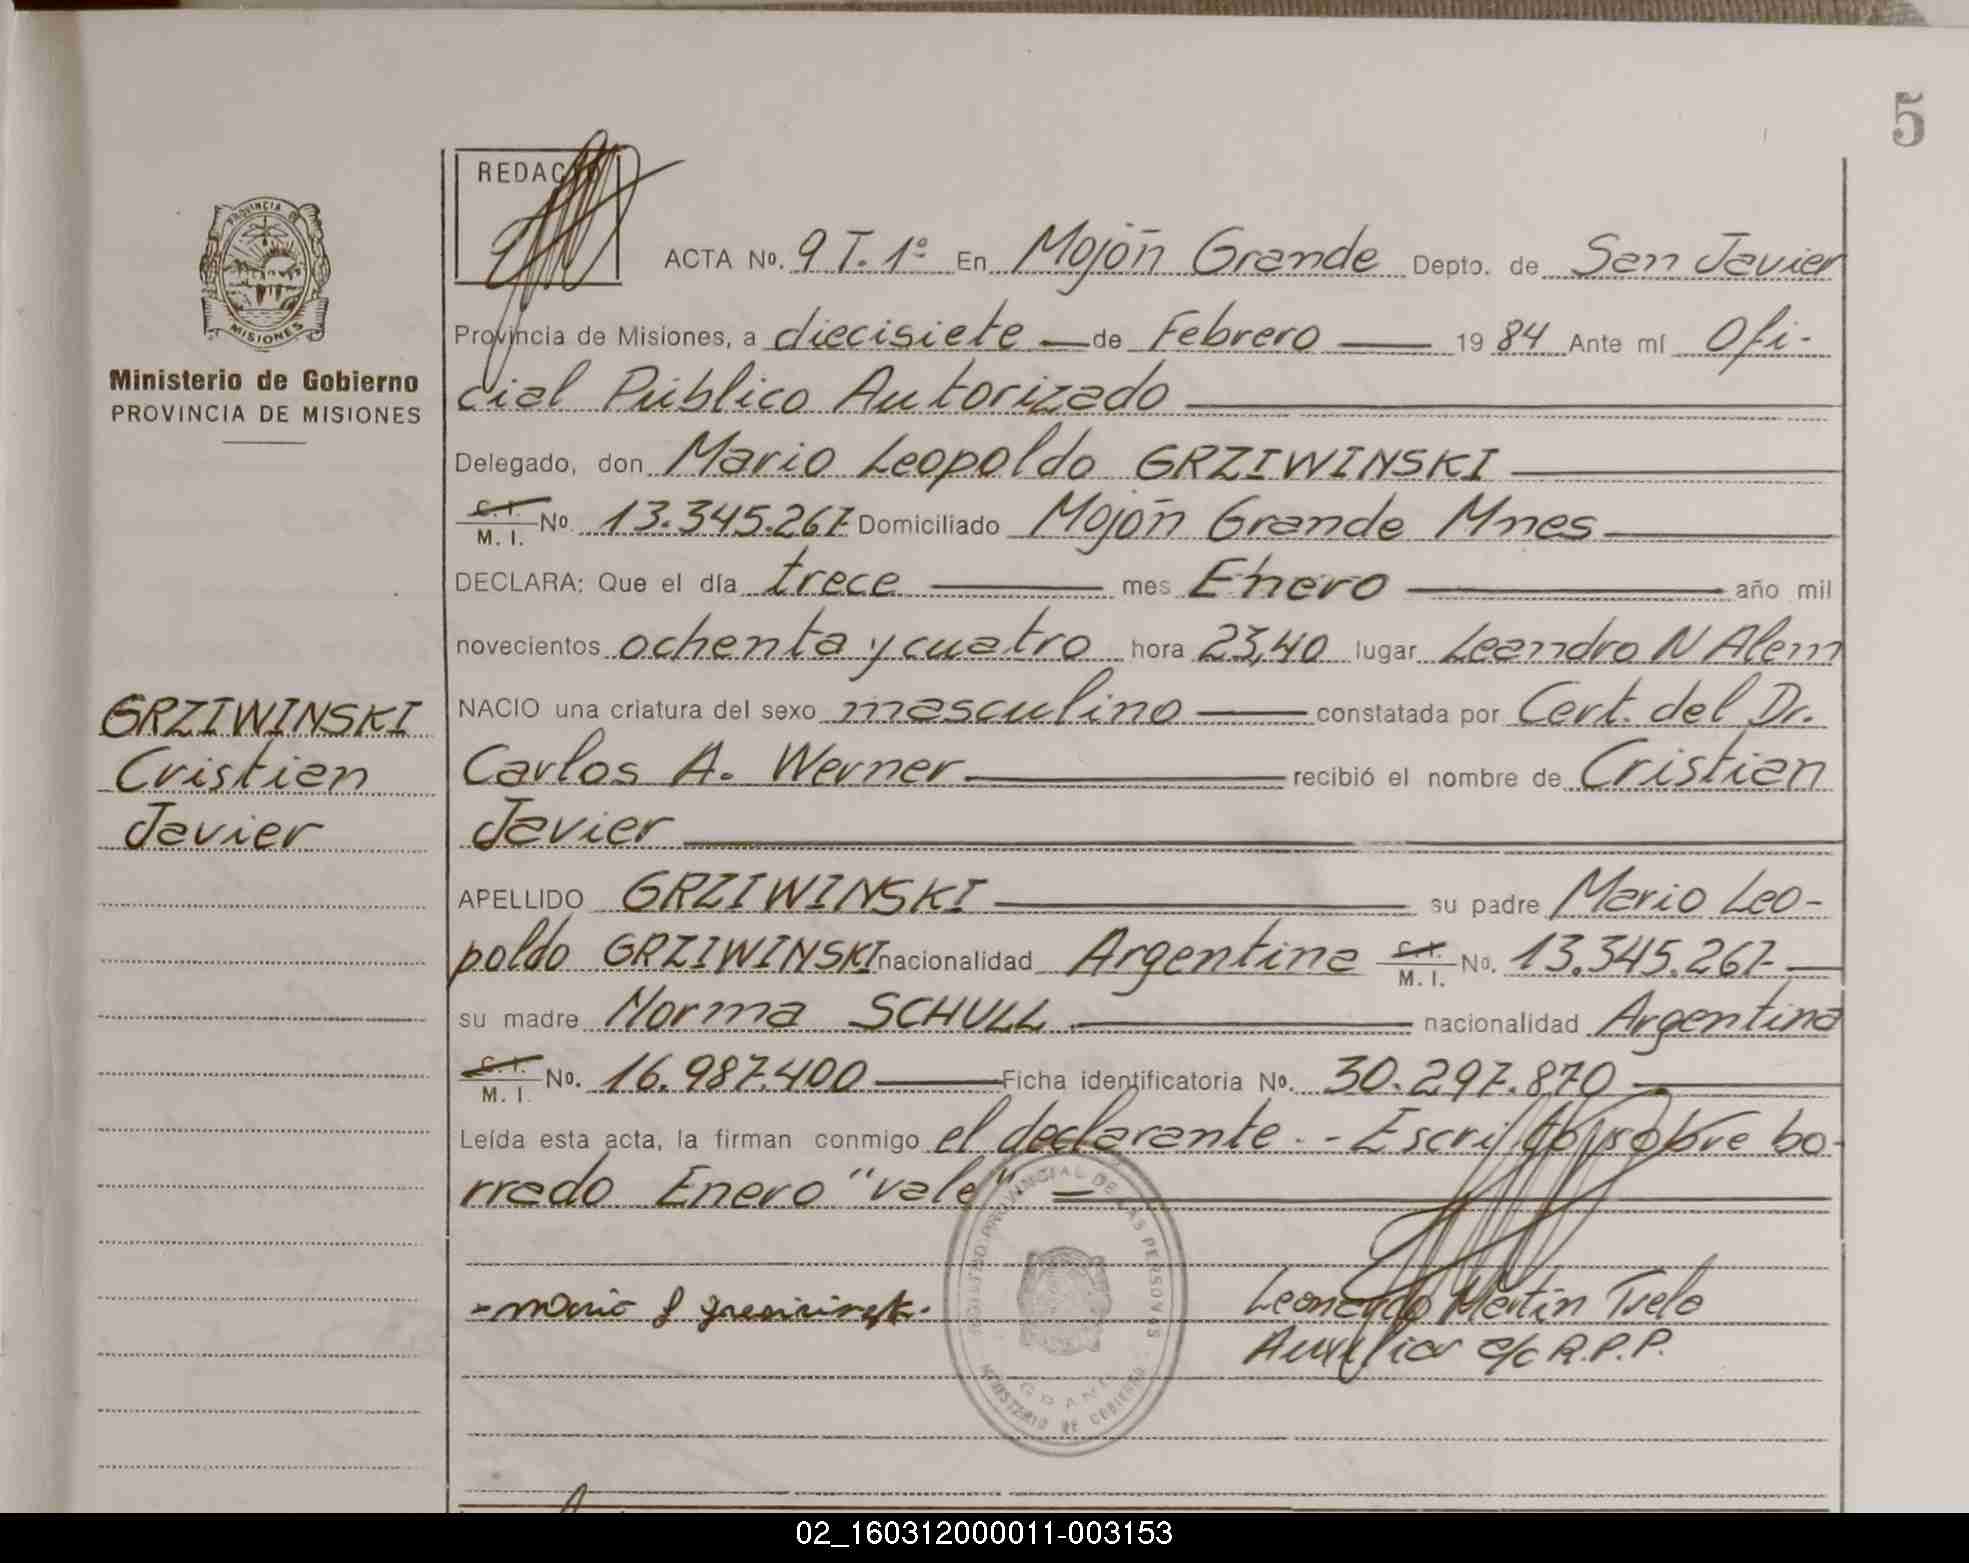 5
REDACTO
ACTA No. 9 T. 1º En Mojón Grande Depto. de San Javier
PROVINCIA DE
MISIONES
Provincia de Misiones, a diecisiete de Febrero 1984 Ante mí Ofi-
Ministerio de Gobierno
PROVINCIA DE MISIONES
cial Público Autorizado
Delegado, don Mario Leopoldo GRZIWINSKI
C. I. M. I. No. 13.345.267 Domiciliado Mojón Grande Mnes
DECLARA: Que el día trece mes Enero año mil
novecientos ochenta y cuatro hora 23,40 lugar Leandro N Alem
NACIO una criatura del sexo masculino constatada por Cert. del Dr.
GRZIWINSKI
Cristian
Javier
Carlos A. Werner recibió el nombre de Cristian
Javier
APELLIDO GRZIWINSKI su padre Mario Leo-
poldo GRZIWINSKI nacionalidad Argentina C. I. M. I. No. 13.345.267
su madre Norma SCHULL nacionalidad Argentina
C. I. M. I. No. 16.987.400 Ficha identificatoria No. 30.297.870
Leída esta acta, la firman conmigo el declarante.- Escrito sobre bo-
rrado Enero "vale"
PROVINCIAL DE LAS PERSONAS
MINISTERIO DE GOBIERNO
Leonardo Martín Tuela
Auxiliar a/c R.P.P.
02_160312000011-003153